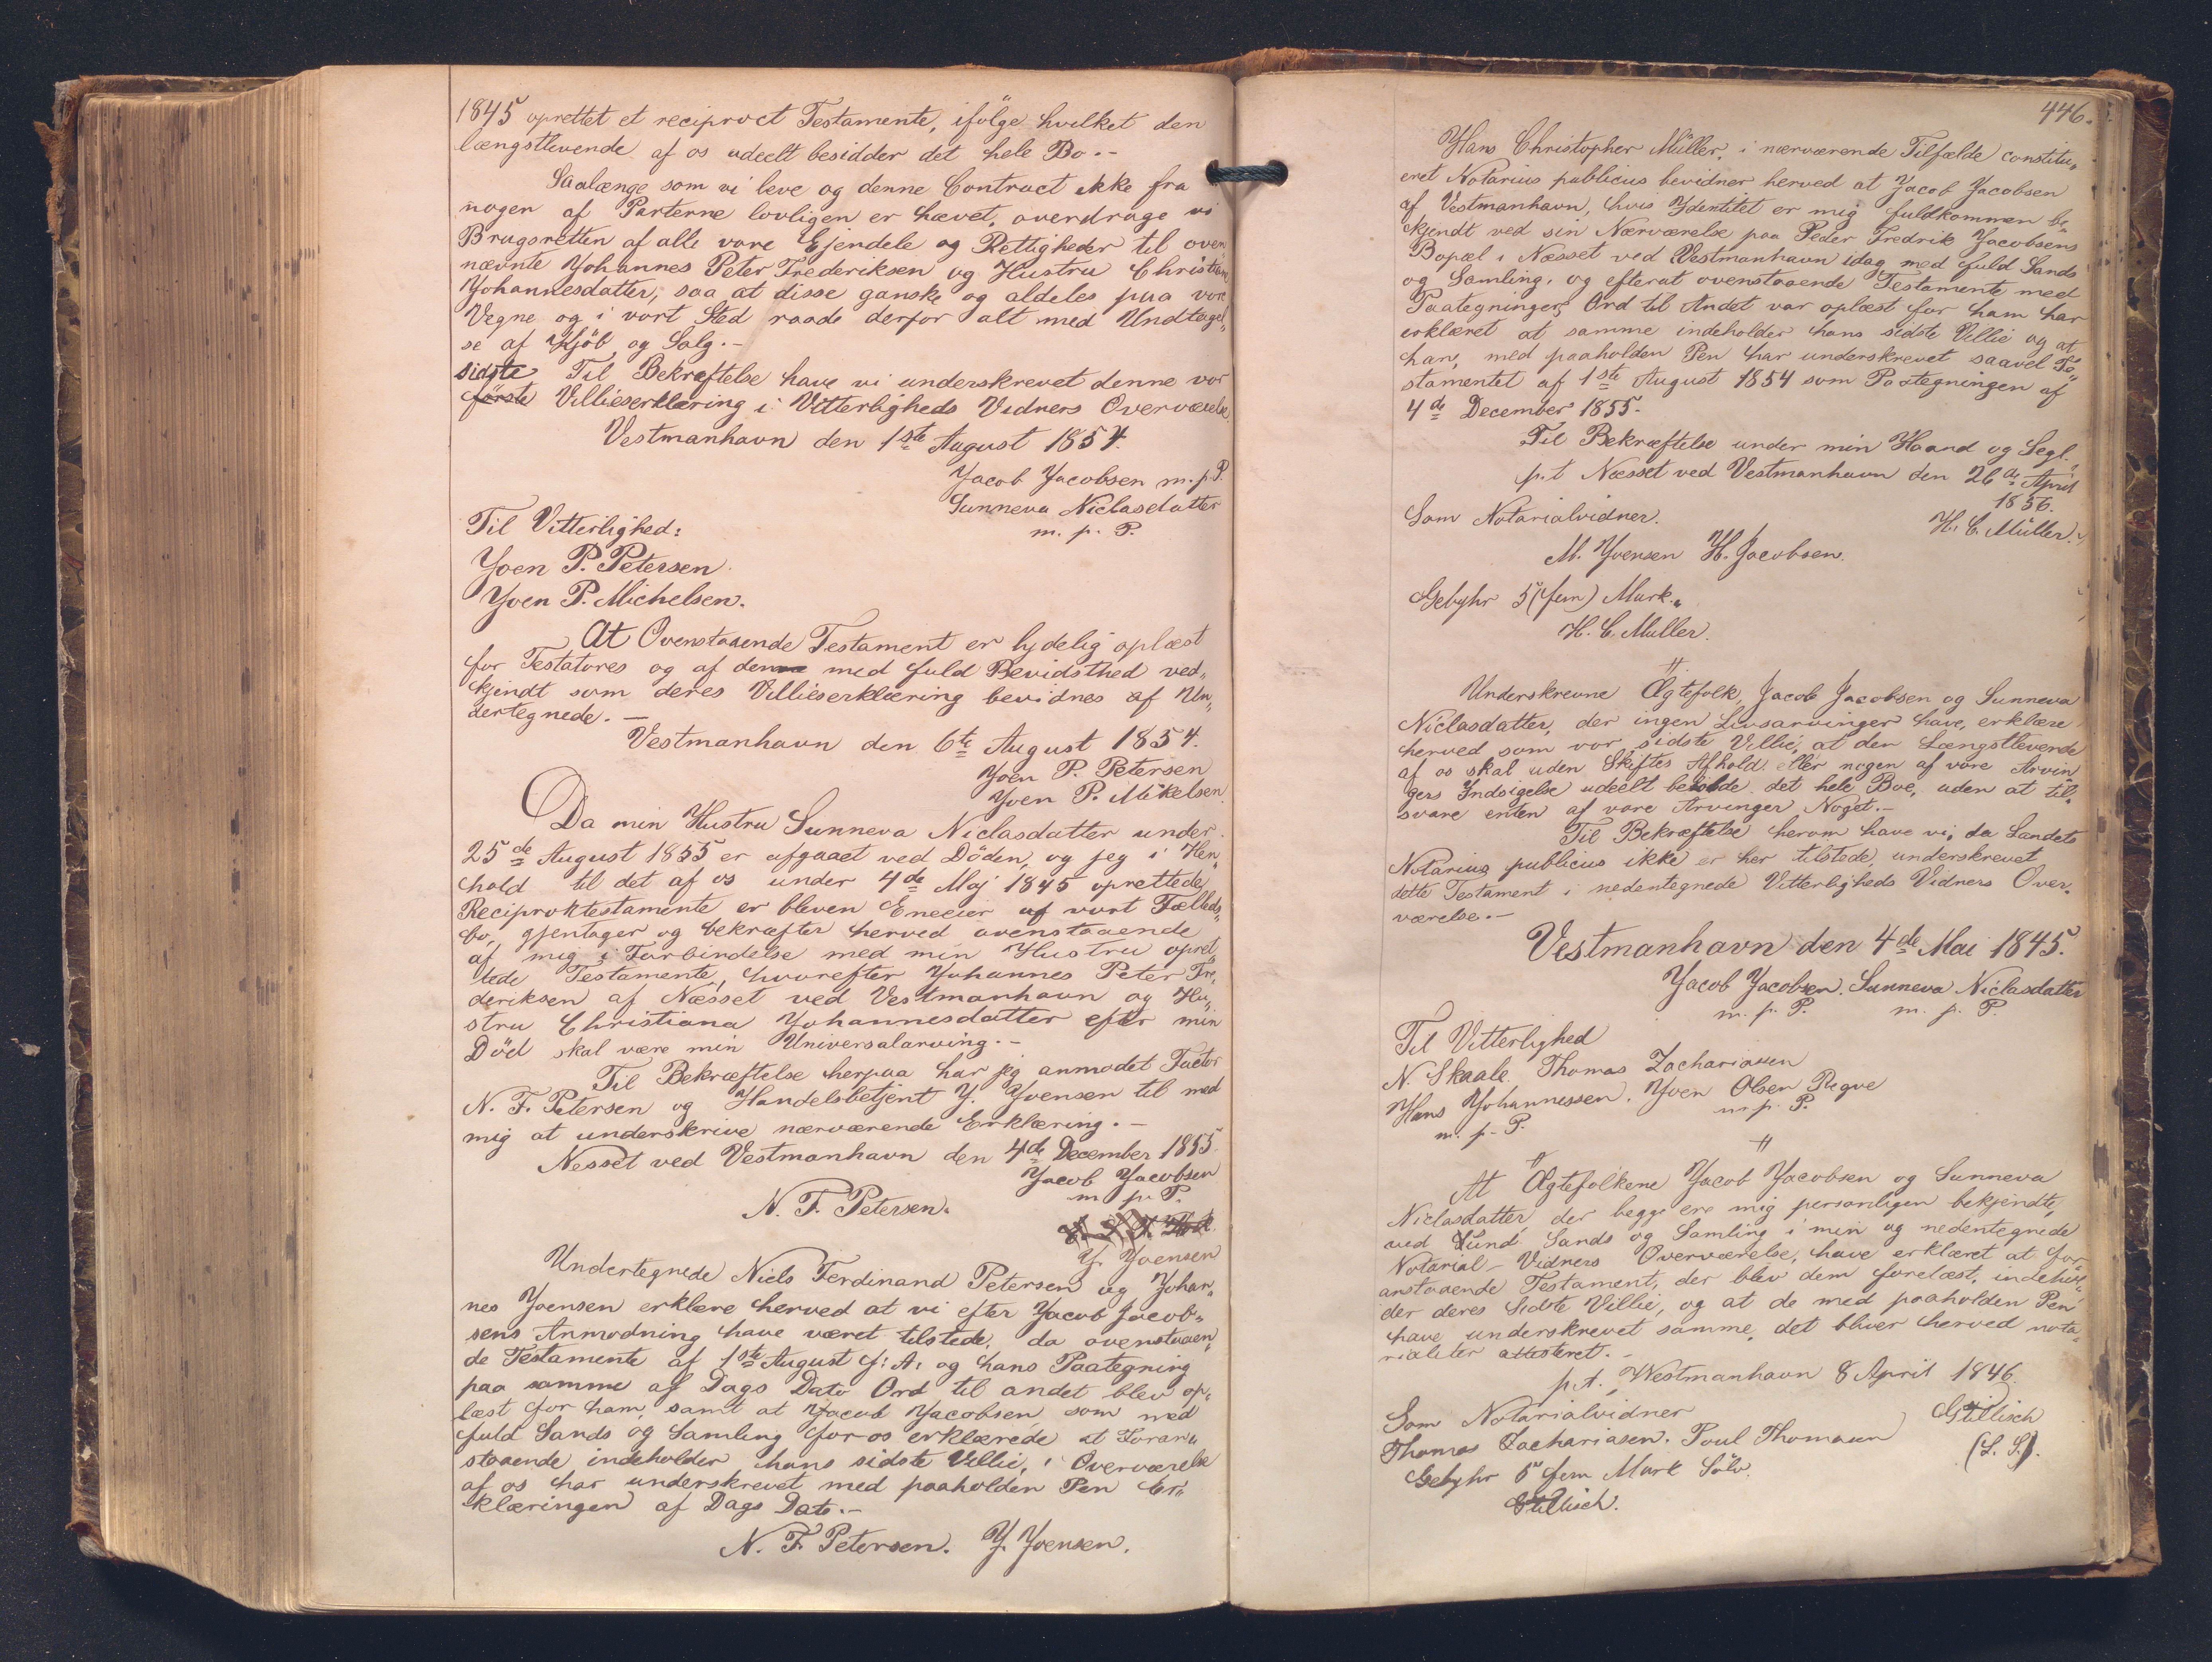 1845 oprettet et reciproct Testamente, ifölge hvilket den
længstlevende af os udeelt besidder det hele Bo.-
Saalænge som vi leve og denne Contract ikke fra
nogen af Parterne lovligen er hævet, overdrage vi
Brugsretten af alle vore Ejendele og Rettigheder til oven
nævnte Johannes Peter Frederiksen og Hustru Christian
Johannesdatter, saa at disse ganske og aldeles paa vore
Vegne og i vort Sted raade derfor alt med Undtagel„
se af Kjöb og Salg.-
sidste Til Bekræftelse have vi underskrevet denne vor
förste Villieserklæring i Vitterligheds Vidners Overværelse
Vestmanhavn den 1ste August 1854.
Jacob Jacobsen m. p. P.
Sunneva Niclasdatter
m. p. P.
Til Vitterlighed:
Joen P. Petersen.
Joen P. Michelsen.
At Ovenstaaende Testament er lydelig oplæst
for Testatores og af dem med fuld Bevidsthed ved„
kjendt som deres Villieserklæring bevidnes af Un„
dertegnede.-
Vestmanhavn den 6te August 1854.
Joen P. Petersen
Joen P. Mikelsen.
Da min Hustru Sunneva Niclasdatter under
25de August 1855 er afgaaet ved Döden, og jeg i Hen„
hold til det af os under 4de Maj 1845 oprettede
Reciproktestamente er bleven Eneeier af vort Fælleds„
bo, gjentager og bekræfter herved ovenstaaende
af mig i Forbindelse med min Hustru opret„
tede Testamente, hvorefter Johannes Peter Fre„
deriksen af Næsset ved Vestmanhavn og Hu„
stru Christiana Johannesdatter efter min
Död skal være min Universalarving.-
Til Bekræftelse herpaa har jeg anmodet Factor
N. F. Petersen og Handelsbetjent J. Joensen til med
mig at underskrive nærværende Erklæring.-
Nesset ved Vestmanhavn den 4de December 1855.
Jacob Jacobsen
m. p. P.
N. F. Petersen.
J. Joensen
Undertegnede Niels Ferdinand Petersen og Johan„
nes Joensen erklære herved at vi efter Jacob Jacob„
sens Anmodning have været tilstede, da ovenstaaen„
de Testamente af 1ste August f: A: og hans Paategning
paa samme af Dags Dato Ord til andet blev op„
læst for ham, samt at Jacob Jacobsen som med
fuld Sands og Samling for os erklærede at Foran„
staaende indeholder hans sidste Villie, i Overværelse
af os har underskrevet med paaholden Pen Er„
klæringen af Dags Dato.-
N. F. Petersen. J. Joensen.
446.
Hans Christopher Müller, i nærværende Tilfælde constitu„
eret Notarius publicus bevidner herved at Jacob Jacobsen
af Vestmanhavn, hvis Identitet er mig fuldkommen be„
kjendt ved sin Nærværelse paa Peder Fredrik Jacobsens
Bopæl i Næsset ved Vestmanhavn idag med fuld Sands
og Samling, og efterat ovenstaaende Testamente med
Paategninger Ord til Andet var oplæst for ham har
erklæret at samme indeholder hans sidste Villie og at
han, med paaholden Pen har underskrevet saavel Te„
stamentet af 1ste August 1854 som Paategningen af
4de December 1855.
Til Bekræftelse under min Haand og Segl.
p.t Næsset ved Vestmanhavn den 26de April
1856.
Som Notarialvidner.
H. C. Müller.
M. Joensen H. Jacobsen.
Gebyhr 5 (fem) Mark.
H. C. Müller.
Underskrevne Ægtefolk, Jacob Jacobsen og Sunneva
Niclasdatter, der ingen Livsarvinger have, erklære
herved som vor sidste Villie, at den Længstlevende
af os skal uden Skiftes Afhold eller nogen af vore Arvin
gers Indsigelse udeelt beholde det hele Boe, uden at til„
svare enten af vore Arvinger Noget.-
Til Bekræftelse herom have vi, da Landets
Notarius publicus ikke er her tilstede, underskrevet
dette Testament i nedentegnede Vitterligheds Vidners Over„
værelse.-
Vestmanhavn den 4de Mai 1845.
Jacob Jacobsen. Sunneva Niclasdatter
m. p. P. m. p. P.
Til Vitterlighed
N. Skaale. Thomas Zachariasen
Hans Johannessen. Joen Olsen Regve
m. p. P. m. p. P.
At Ægtefolkene Jacob Jacobsen og Sunneva
Niclasdatter, der begge ere mig personligen bekjendte,
ved sund Sands og Samling i min og nedentegnede
Notarial-Vidners Overværelse, have erklæret at for„
anstaaende Testament, der blev dem forelæst, indehol„
der deres sidste Villie, og at de med paaholden Pen
have underskrevet samme, det bliver herved nota„
rialiter attesteret.-
p.t. Westmanhavn 8 April 1846.
Som Notarialvidner
Thomas Zachariasen. Poul Thomasen
(L. S.).
Gebyhr 5 fem Mark Sölv.